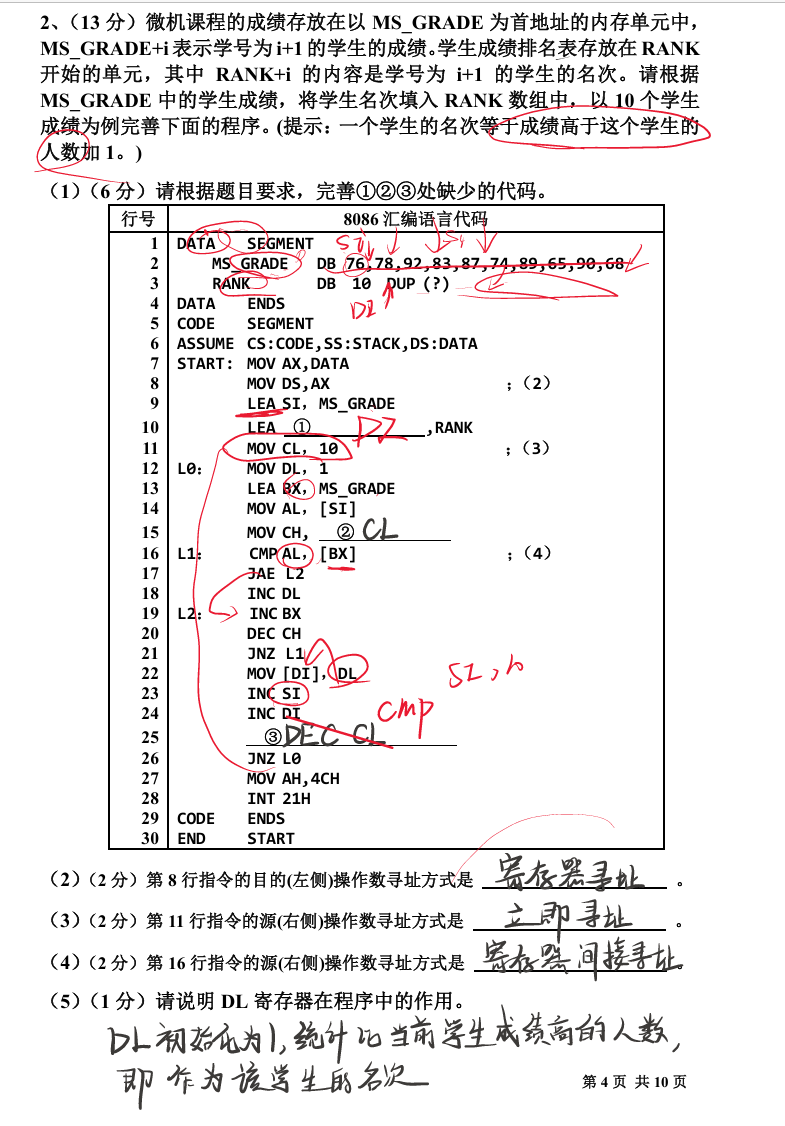 2、（13 分）微机课程的成绩存放在以 MS_GRADE 为首地址的内存单元中，
MS_GRADE+i 表示学号为 i+1 的学生的成绩。学生成绩排名表存放在 RANK
开始的单元，其中 RANK+i 的内容是学号为 i+1 的学生的名次。请根据
MS_GRADE 中的学生成绩，将学生名次填入 RANK 数组中，以 10 个学生
成绩为例完善下面的程序。(提示：一个学生的名次等于成绩高于这个学生的
人数加 1。)
（1）（6 分）请根据题目要求，完善①②③处缺少的代码。
行号 8086 汇编语言代码
1 DATA SEGMENT SI SI
2 MS_GRADE DB 76,78,92,83,87,74,89,65,90,68
3 RANK DB 10 DUP (?)
DI
4 DATA ENDS
5 CODE SEGMENT
6 ASSUME CS:CODE,SS:STACK,DS:DATA
7 START: MOV AX,DATA
8 MOV DS,AX ;（2）
9 LEA SI, MS_GRADE
10 LEA ① DI ,RANK
11 MOV CL, 10 ;（3）
12 L0: MOV DL, 1
13 LEA BX, MS_GRADE
14 MOV AL, [SI]
15 MOV CH, ② CL
16 L1: CMP AL, [BX] ;（4）
17 JAE L2
18 INC DL
19 L2: INC BX
20 DEC CH
21 JNZ L1
22 MOV [DI], DL
23 INC SI SI, 10
24 INC DI cmp
25 ③DEC CL
26 JNZ L0
27 MOV AH,4CH
28 INT 21H
29 CODE ENDS
30 END START
（2）（2 分）第 8 行指令的目的(左侧)操作数寻址方式是 寄存器寻址 。
（3）（2 分）第 11 行指令的源(右侧)操作数寻址方式是 立即寻址 。
（4）（2 分）第 16 行指令的源(右侧)操作数寻址方式是 寄存器间接寻址 。
（5）（1 分）请说明 DL 寄存器在程序中的作用。
DL初始化为1,统计比当前学生成绩高的人数,
即作为该学生的名次
第 4 页 共 10 页